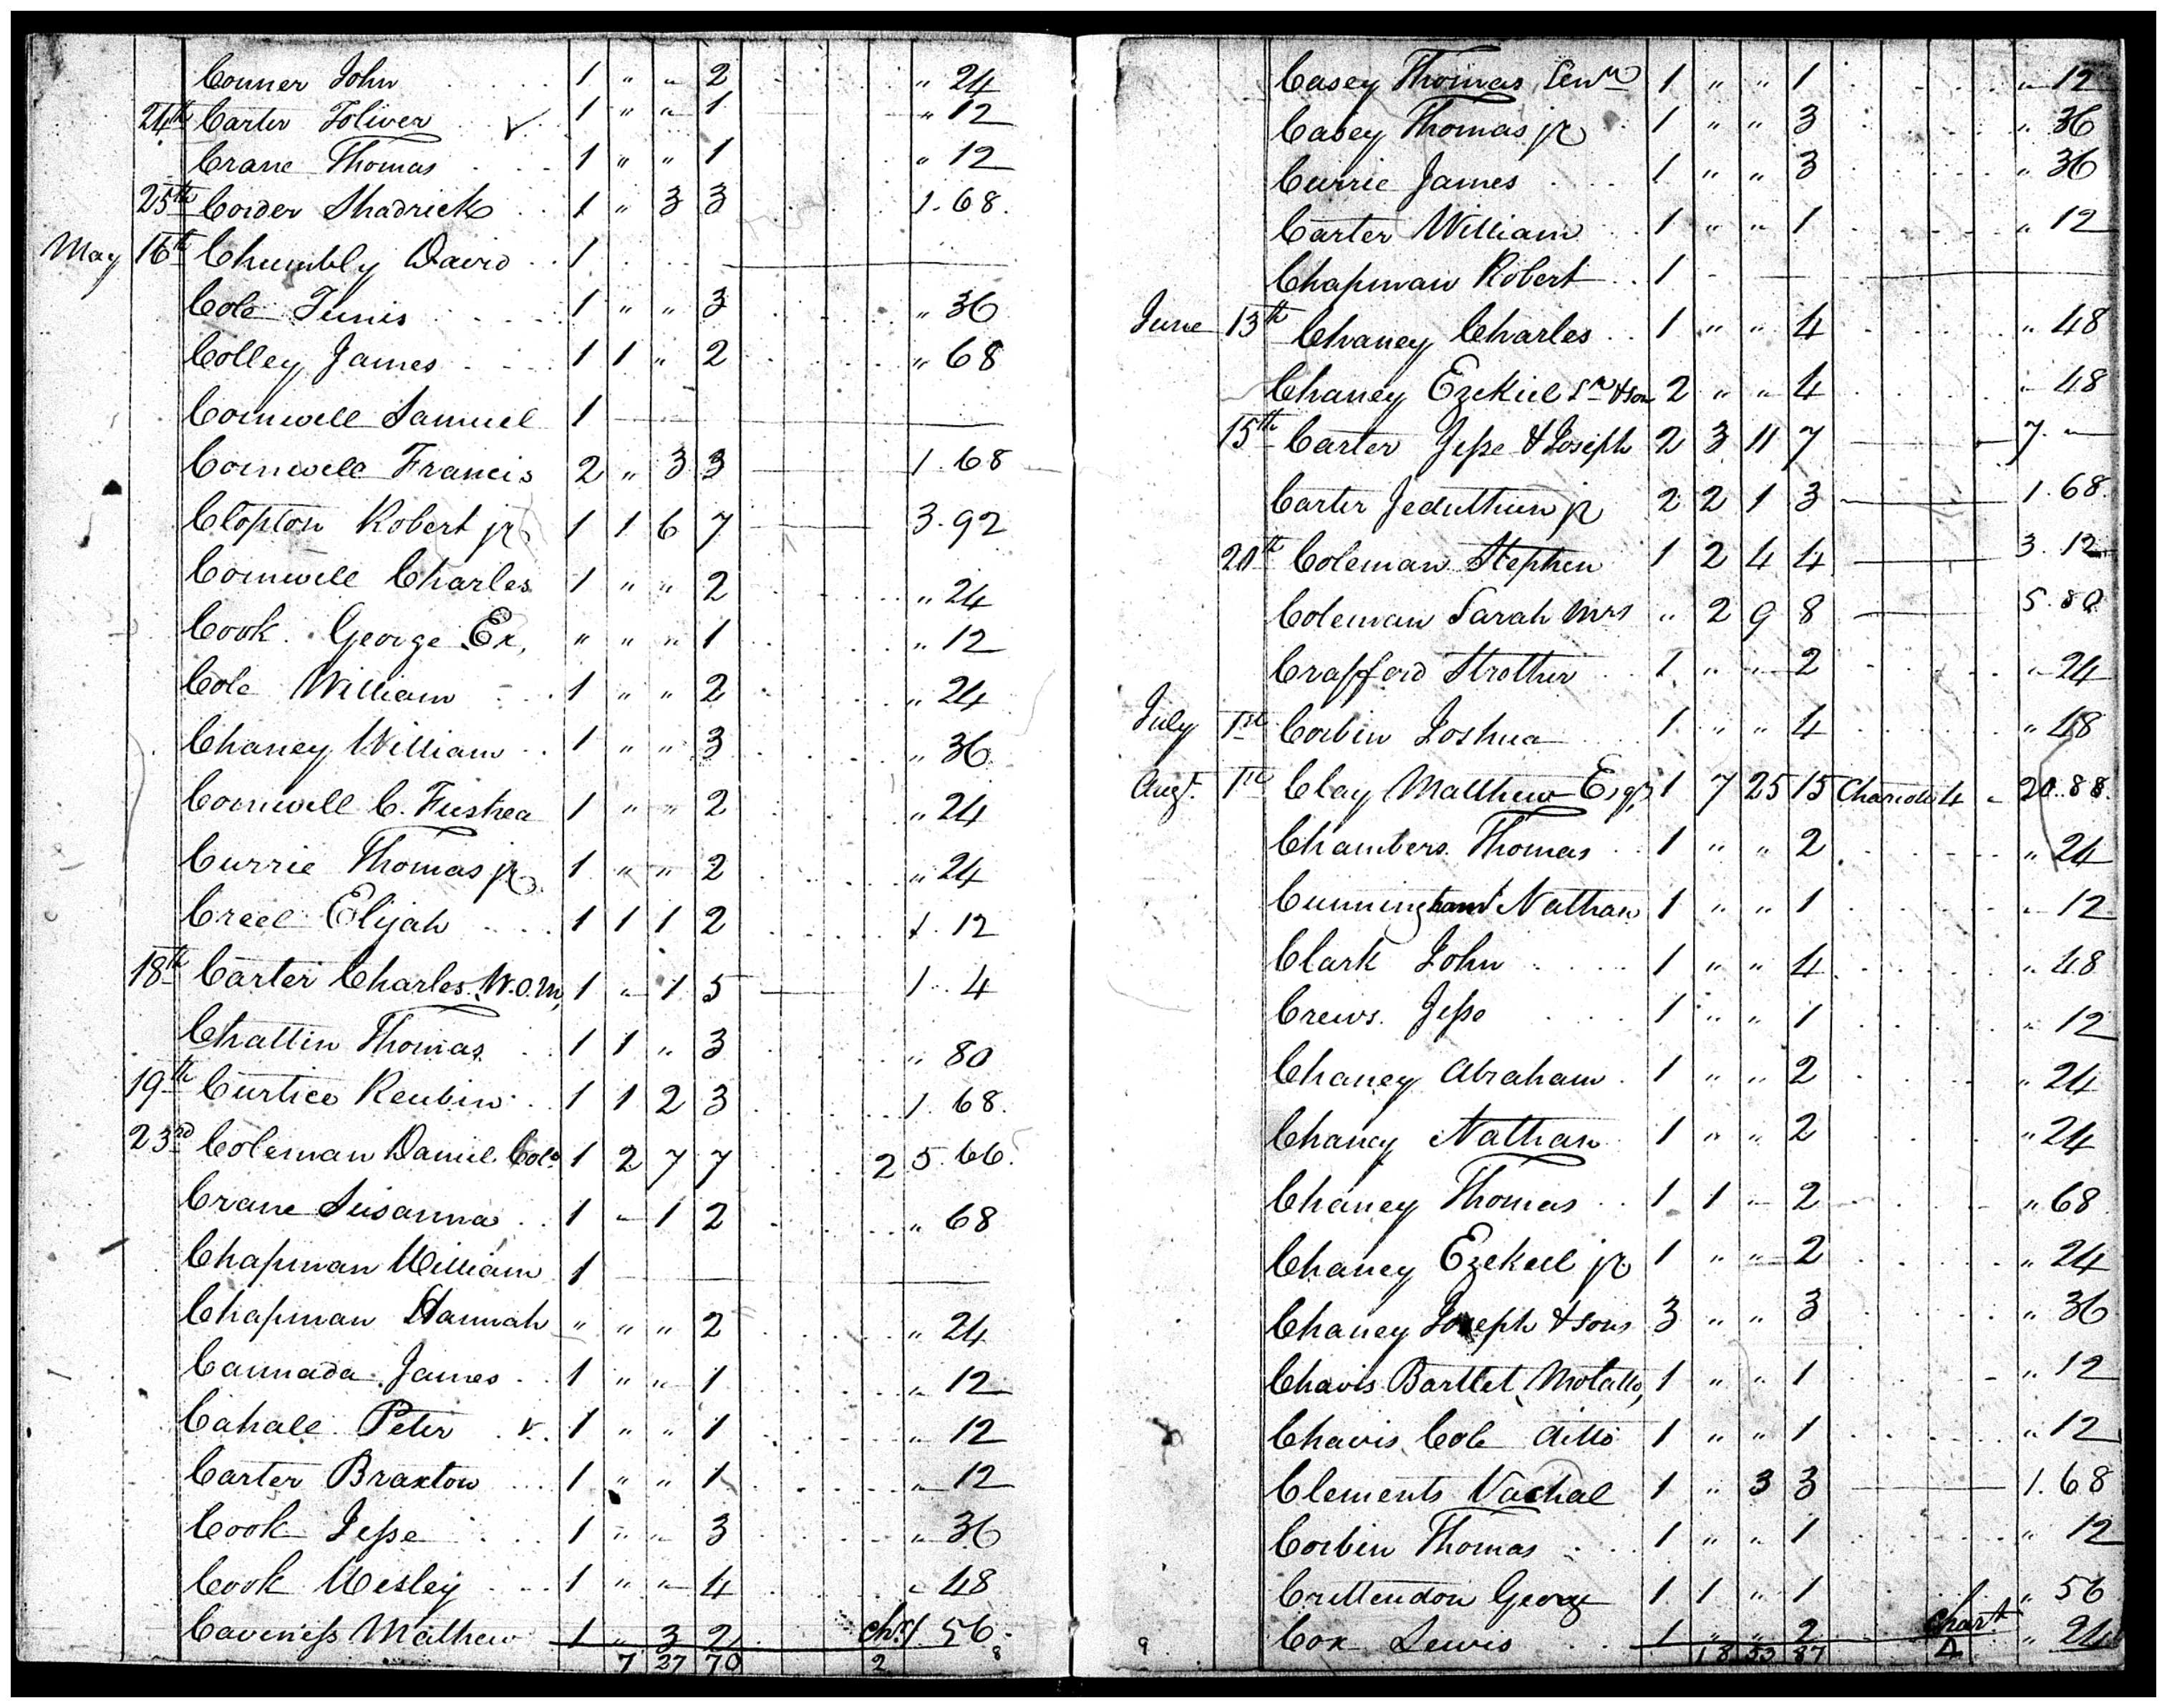 Conner John 1 " " 2 " 24
24th Carter Toliver V 1 " " 1 " 12
Crane Thomas 1 " " 1 " 12
25th Corder Shadrick 1 " 3 3 1. 68.
May 16th Chumbly David 1
Cole Tunis 1 " " 3 " 36
Colley James 1 1 " 2 " 68
Cornwell Samuel 1
Cornwell Francis 2 " 3 3 1. 68
Clopton Robert jr. 1 1 6 7 3. 92
Cornwell Charles 1 " " 2 " 24
Cook George Ex. " " " 1 " 12
Cole William 1 " " 2 " 24
Chaney William 1 " " 3 " 36
Cornwell C. 1 " " 2 " 24
Currie Thomas jr. 1 " " 2 " 24
Creel Elijah 1 1 1 2 1. 12
18th Carter Charles W.O.M, 1 " 1 5 1. 4
Chattin Thomas 1 1 " 3 " 80
19th Curtice Reubin 1 1 2 3 1. 68.
23rd Coleman Daniel Colo. 1 2 7 7 2 5. 66.
Crane Susanna 1 " 1 2 " 68
Chapman William 1
Chapman Hannah " " " 2 " 24
Cannada James 1 " " 1 " 12
Cahall Peter v. 1 " " 1 " 12
Carter Braxton 1 " " 1 " 12
Cook Jesse 1 " " 3 " 36
Cook Wesley 1 " " 4 " 48
Caviness Mathew 1 " 3 2 chr. 1. 56.
7 27 70 2 8
Casey Thomas Senr 1 " " 1 " 12
Casey Thomas jr 1 " " 3 " 36
Currie James 1 " " 3 " 36
Carter William 1 " " 1 " 12
Chapman Robert 1
June 13th Chaney Charles 1 " " 4 " 48
Chaney Ezekiel Sr & son 2 " " 4 " 48
15th Carter Jesse & Joseph 2 3 11 7 7. "
Carter Jeduthun jr 2 2 1 3 1. 68.
20th Coleman Stephen 1 2 4 4 3. 12
Coleman Sarah Mrs " 2 9 8 5. 80
Crafford Strother 1 " " 2 " 24
July 1st Corbin Joshua 1 " " 4 " 48
Augt. 1st Clay Matthew Esqr. 1 7 25 15 Chariott 4 20. 88.
Chambers Thomas 1 " " 2 " 24
Cunningham Nathan 1 " " 1 " 12
Clark John 1 " " 4 " 48
Crews Jesse 1 " " 1 " 12
Chaney Abraham 1 " " 2 " 24
Chaney Nathan 1 " " 2 " 24
Chaney Thomas 1 1 " 2 " 68
Chaney Ezekiel jr. 1 " " 2 " 24
Chaney Joseph & sons 3 " " 3 " 36
Chavis Bartlet Molatto, 1 " " 1 " 12
Chavis Cole ditto 1 " " 1 " 12
Clements Vachal 1 " 3 3 1. 68
Corbin Thomas 1 " " 1 " 12
Crittendon George 1 1 " 1 " 56
Cox Lewis 1 " " 2 Chart " 24
9 18 53 87 4